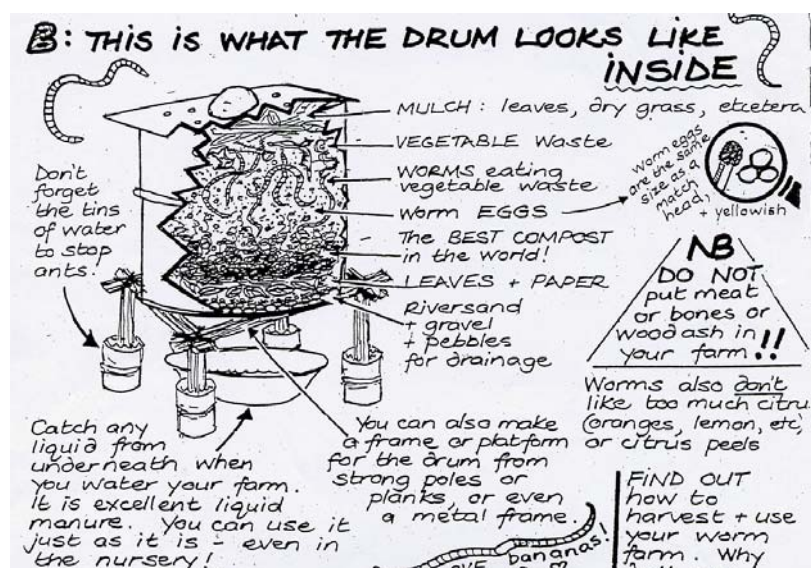 B: THIS IS WHAT THE DRUM LOOKS LIKE
INSIDE
MULCH: leaves, dry grass, etcetera
VEGETABLE Waste
WORMS eating
vegetable waste
Worm EGGS
The BEST COMPOST
in the world!
LEAVES + PAPER
Riversand
+ gravel
+ pebbles
for drainage
Worm eggs
are the same
size as a
match
head,
+ yellowish
Don't
forget
the tins
of water
to stop
ants!
NB
DO NOT
put meat
or bones or
woodash in
your farm!!
Worms also don't
like too much citru
(oranges, lemon, etc)
or citrus peels
Catch any
liquid from
underneath when
you water your farm.
It is excellent liquid
manure. You can use it
just as it is - even in
the nursery!
You can also make
a frame or platform
for the drum from
strong poles or
planks, or even
a metal frame.
bananas!
FIND OUT
how to
harvest + use
your worm
farm. Why